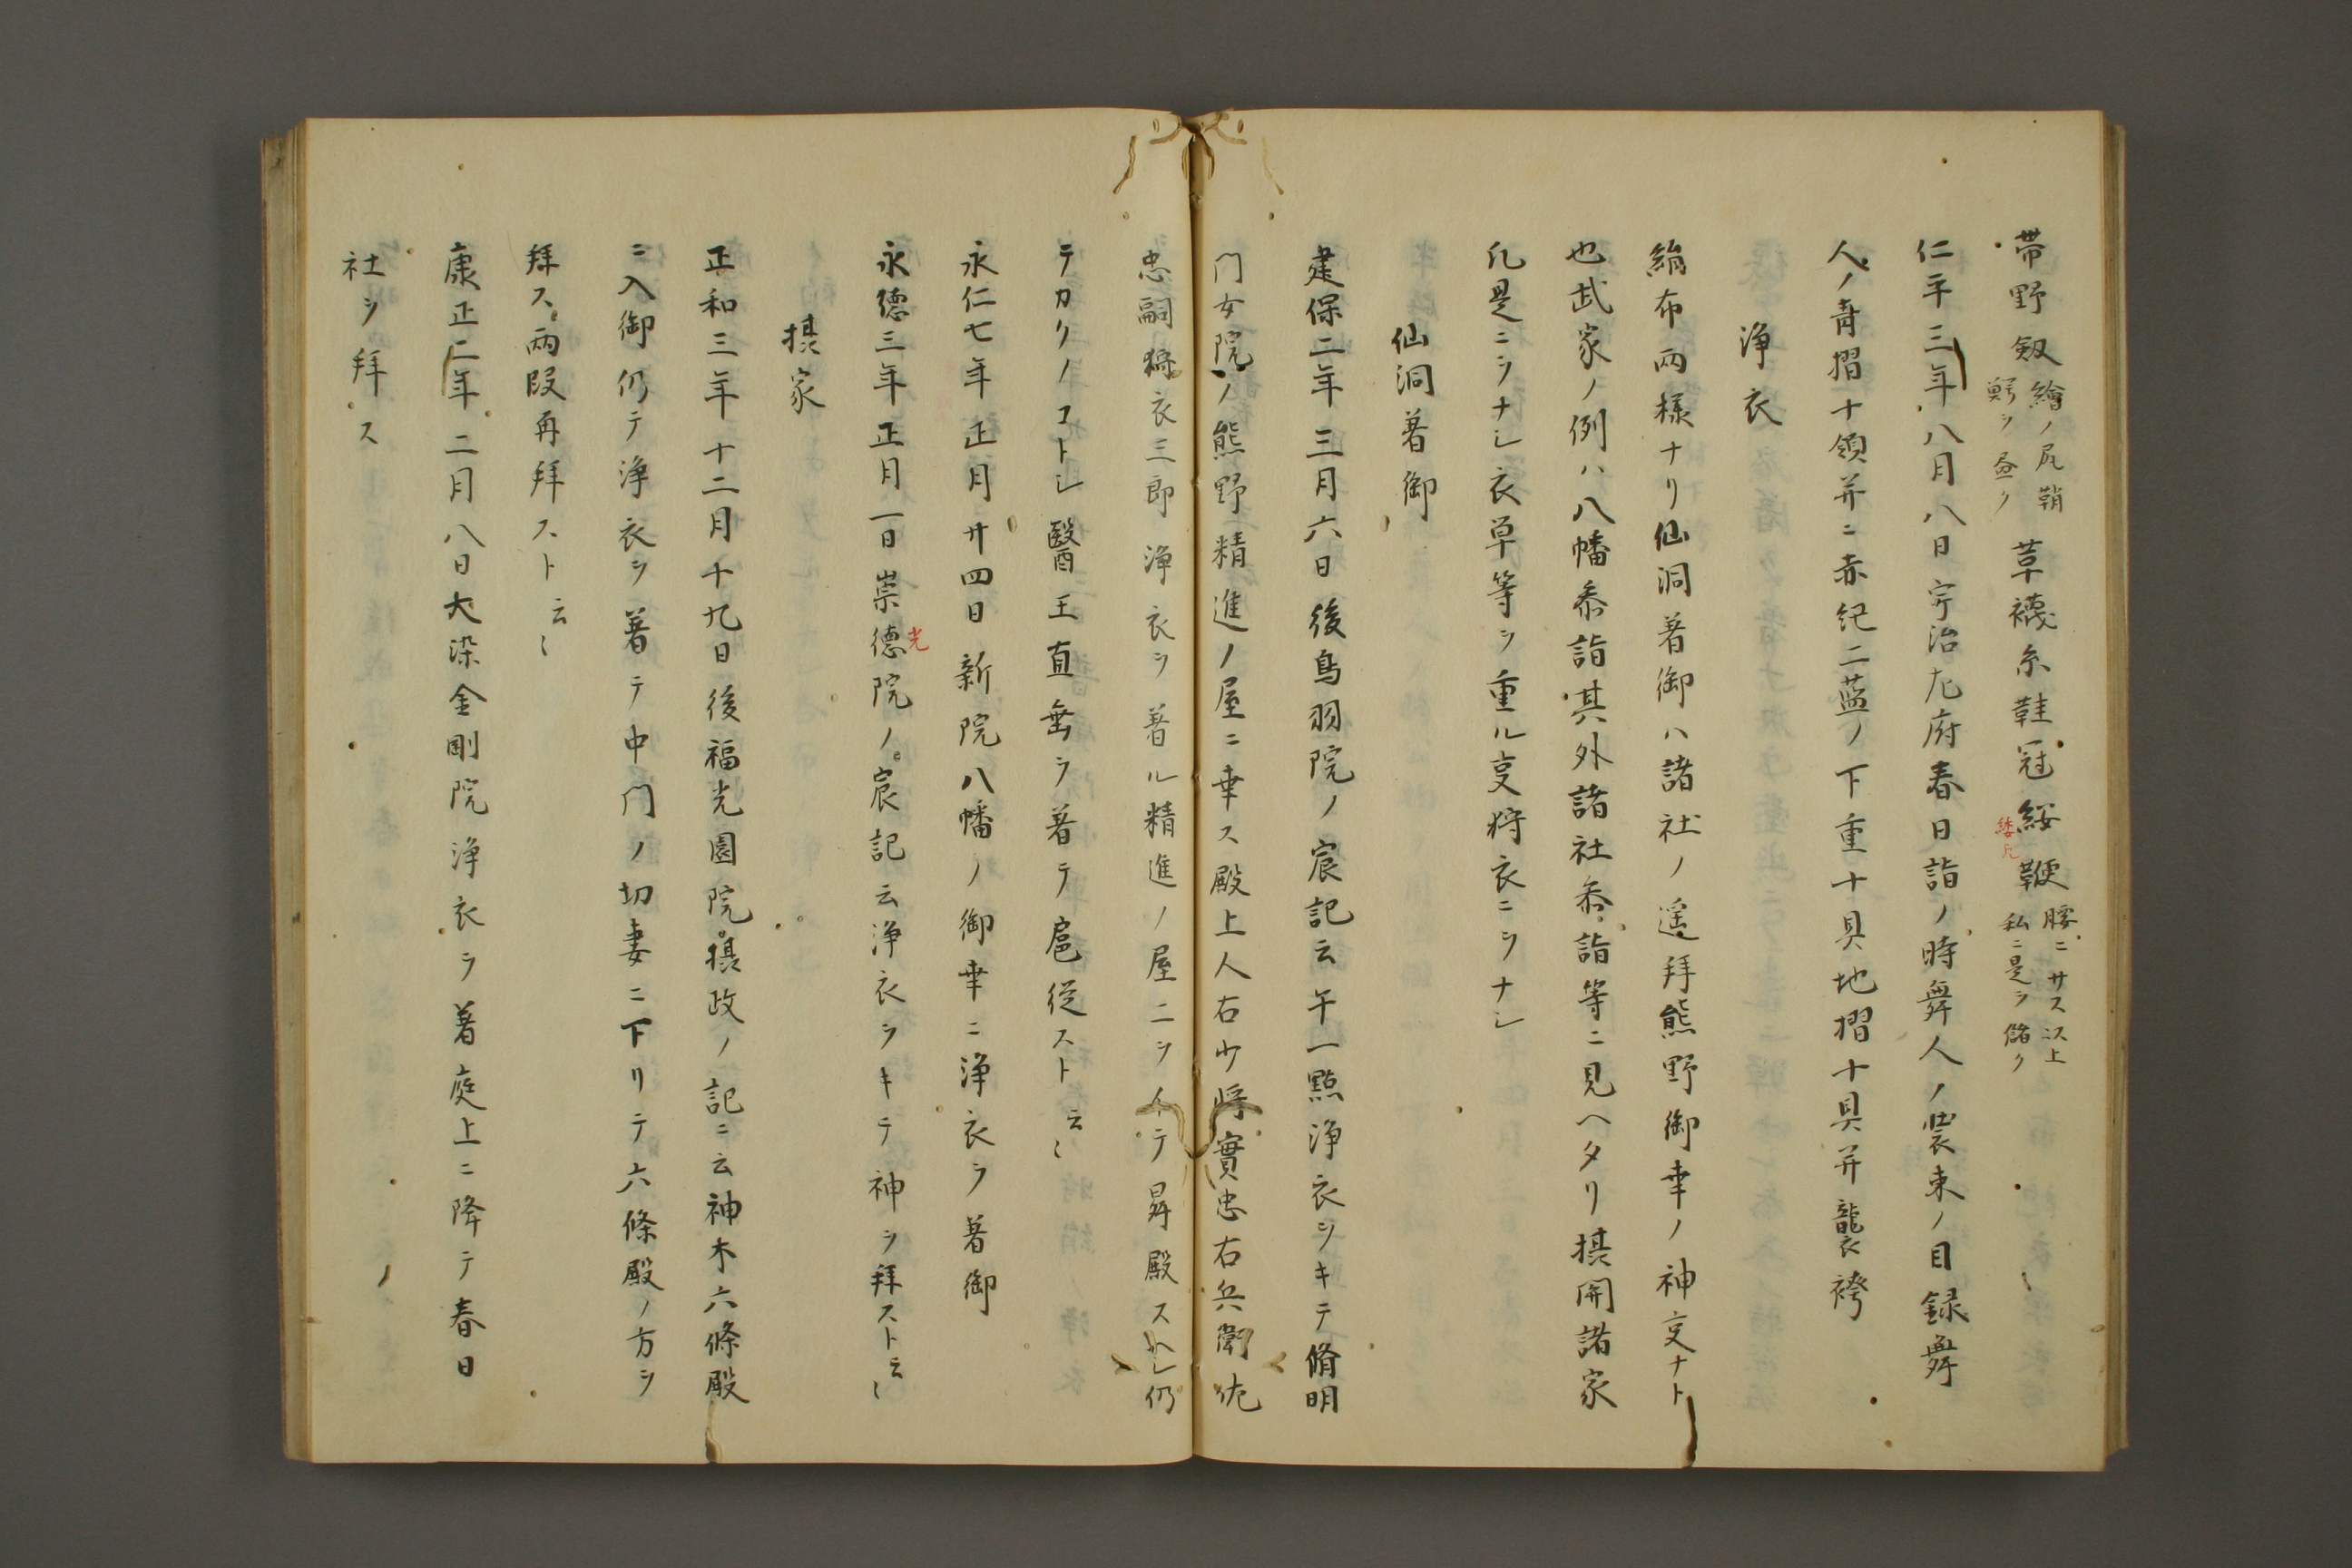 帯野剱 繪ノ尻鞘 鰐ヲ畫ク 草襪糸鞋冠緌鞭 腰ニサス以上 私ニ是ヲ儲ク
仁平三年八月八日宇治左府春日詣ノ時舞人ノ裝束ノ目録舞
人ノ青摺十領并ニ赤紀二藍ノ下重十具地摺十具并襲袴
浄衣
絹布両様ナリ仙洞著御ハ諸社ノ遥拜熊野御幸ノ神事ナト
也武家ノ例ハ八幡参詣其外諸社参詣等ニ見ヘタリ摂関諸家
凡是ニヲナシ衣単等ヲ重ル事狩衣ニヲナシ
仙洞著御
建保二年三月六日後鳥羽院ノ宸記云午一點浄衣ヲキテ脩明
門女院ノ熊野精進ノ屋ニ幸ス殿上人右少将實忠右兵衛佐
忠嗣狩衣三郎浄衣ヲ著ル精進ノ屋ニヲイテ昇殿スヘシ仍
テカクノコトシ醫王直垂ヲ著テ扈従スト云〻
永仁七年正月廿四日新院八幡ノ御幸ニ浄衣ヲ著御
永徳三年正月一日崇徳院ノ宸記云浄衣ヲキテ神ヲ拜スト云〻
光
摂家
正和三年十二月十九日後福光園院摂政ノ記ニ云神木六條殿
ニ入御仍テ浄衣ヲ著テ中門ノ切妻ニ下リテ六條殿ノ方ヲ
拜ス両段再拜スト云〻
康正二年二月八日大染金剛院浄衣ヲ著庭上ニ降テ春日
社ヲ拜ス